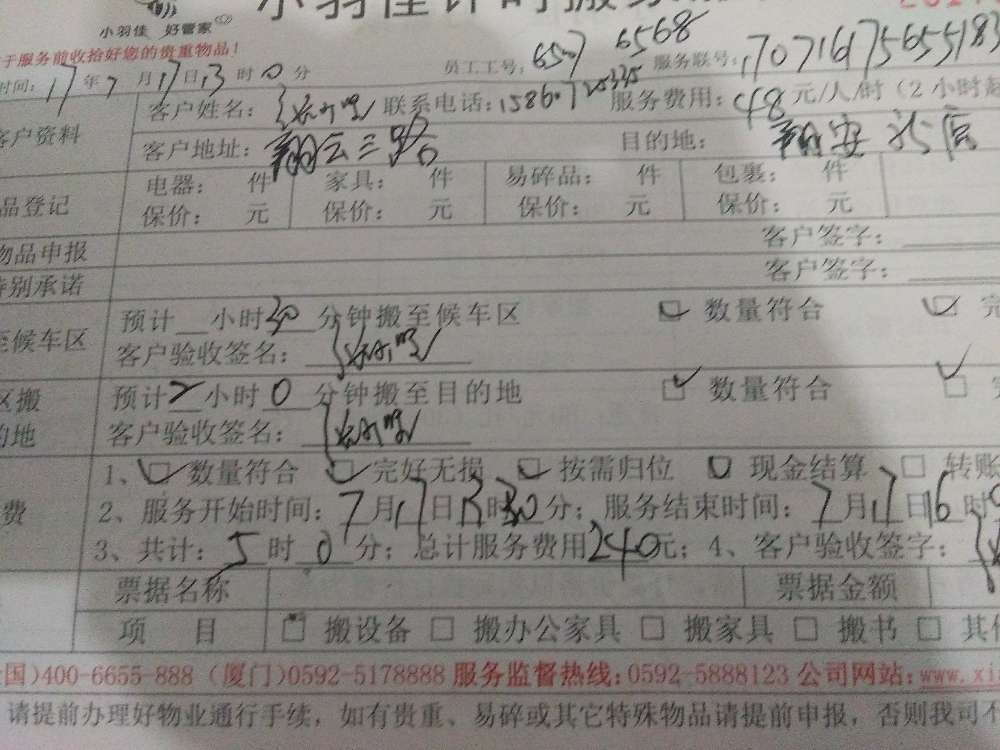 小羽佳 好管家
于服务前收拾好您的贵重物品!
时间: 17 年 7 月 17 日 13 时 0 分 员工工号: 6507 6568 服务联号: 170716175655183
客户资料 客户姓名: 联系电话: 服务费用: 48 元/人/时 (2小时起
客户地址: 翔云三路 目的地: 翔安
品登记 电器: 件 家具: 件 易碎品: 件 包裹: 件
保价: 元 保价: 元 保价: 元 保价: 元
物品申报 客户签字:
特别承诺 客户签字:
至候车区 预计 小时 30 分钟搬至候车区 数量符合 完
客户验收签名:
区搬 预计 2 小时 0 分钟搬至目的地 数量符合
的地 客户验收签名:
1、 数量符合 完好无损 按需归位 现金结算 转账
费 2、服务开始时间: 7月17日13时30分; 服务结束时间: 7月17日16时
3、共计: 5 时 0 分; 总计服务费用 240 元; 4、客户验收签字:
票据名称 票据金额
项 目 搬设备 搬办公家具 搬家具 搬书 其他
国)400-6655-888 (厦门)0592-5178888 服务监督热线:0592-5888123 公司网站:www.xi
请提前办理好物业通行手续，如有贵重、易碎或其它特殊物品请提前申报，否则我司不